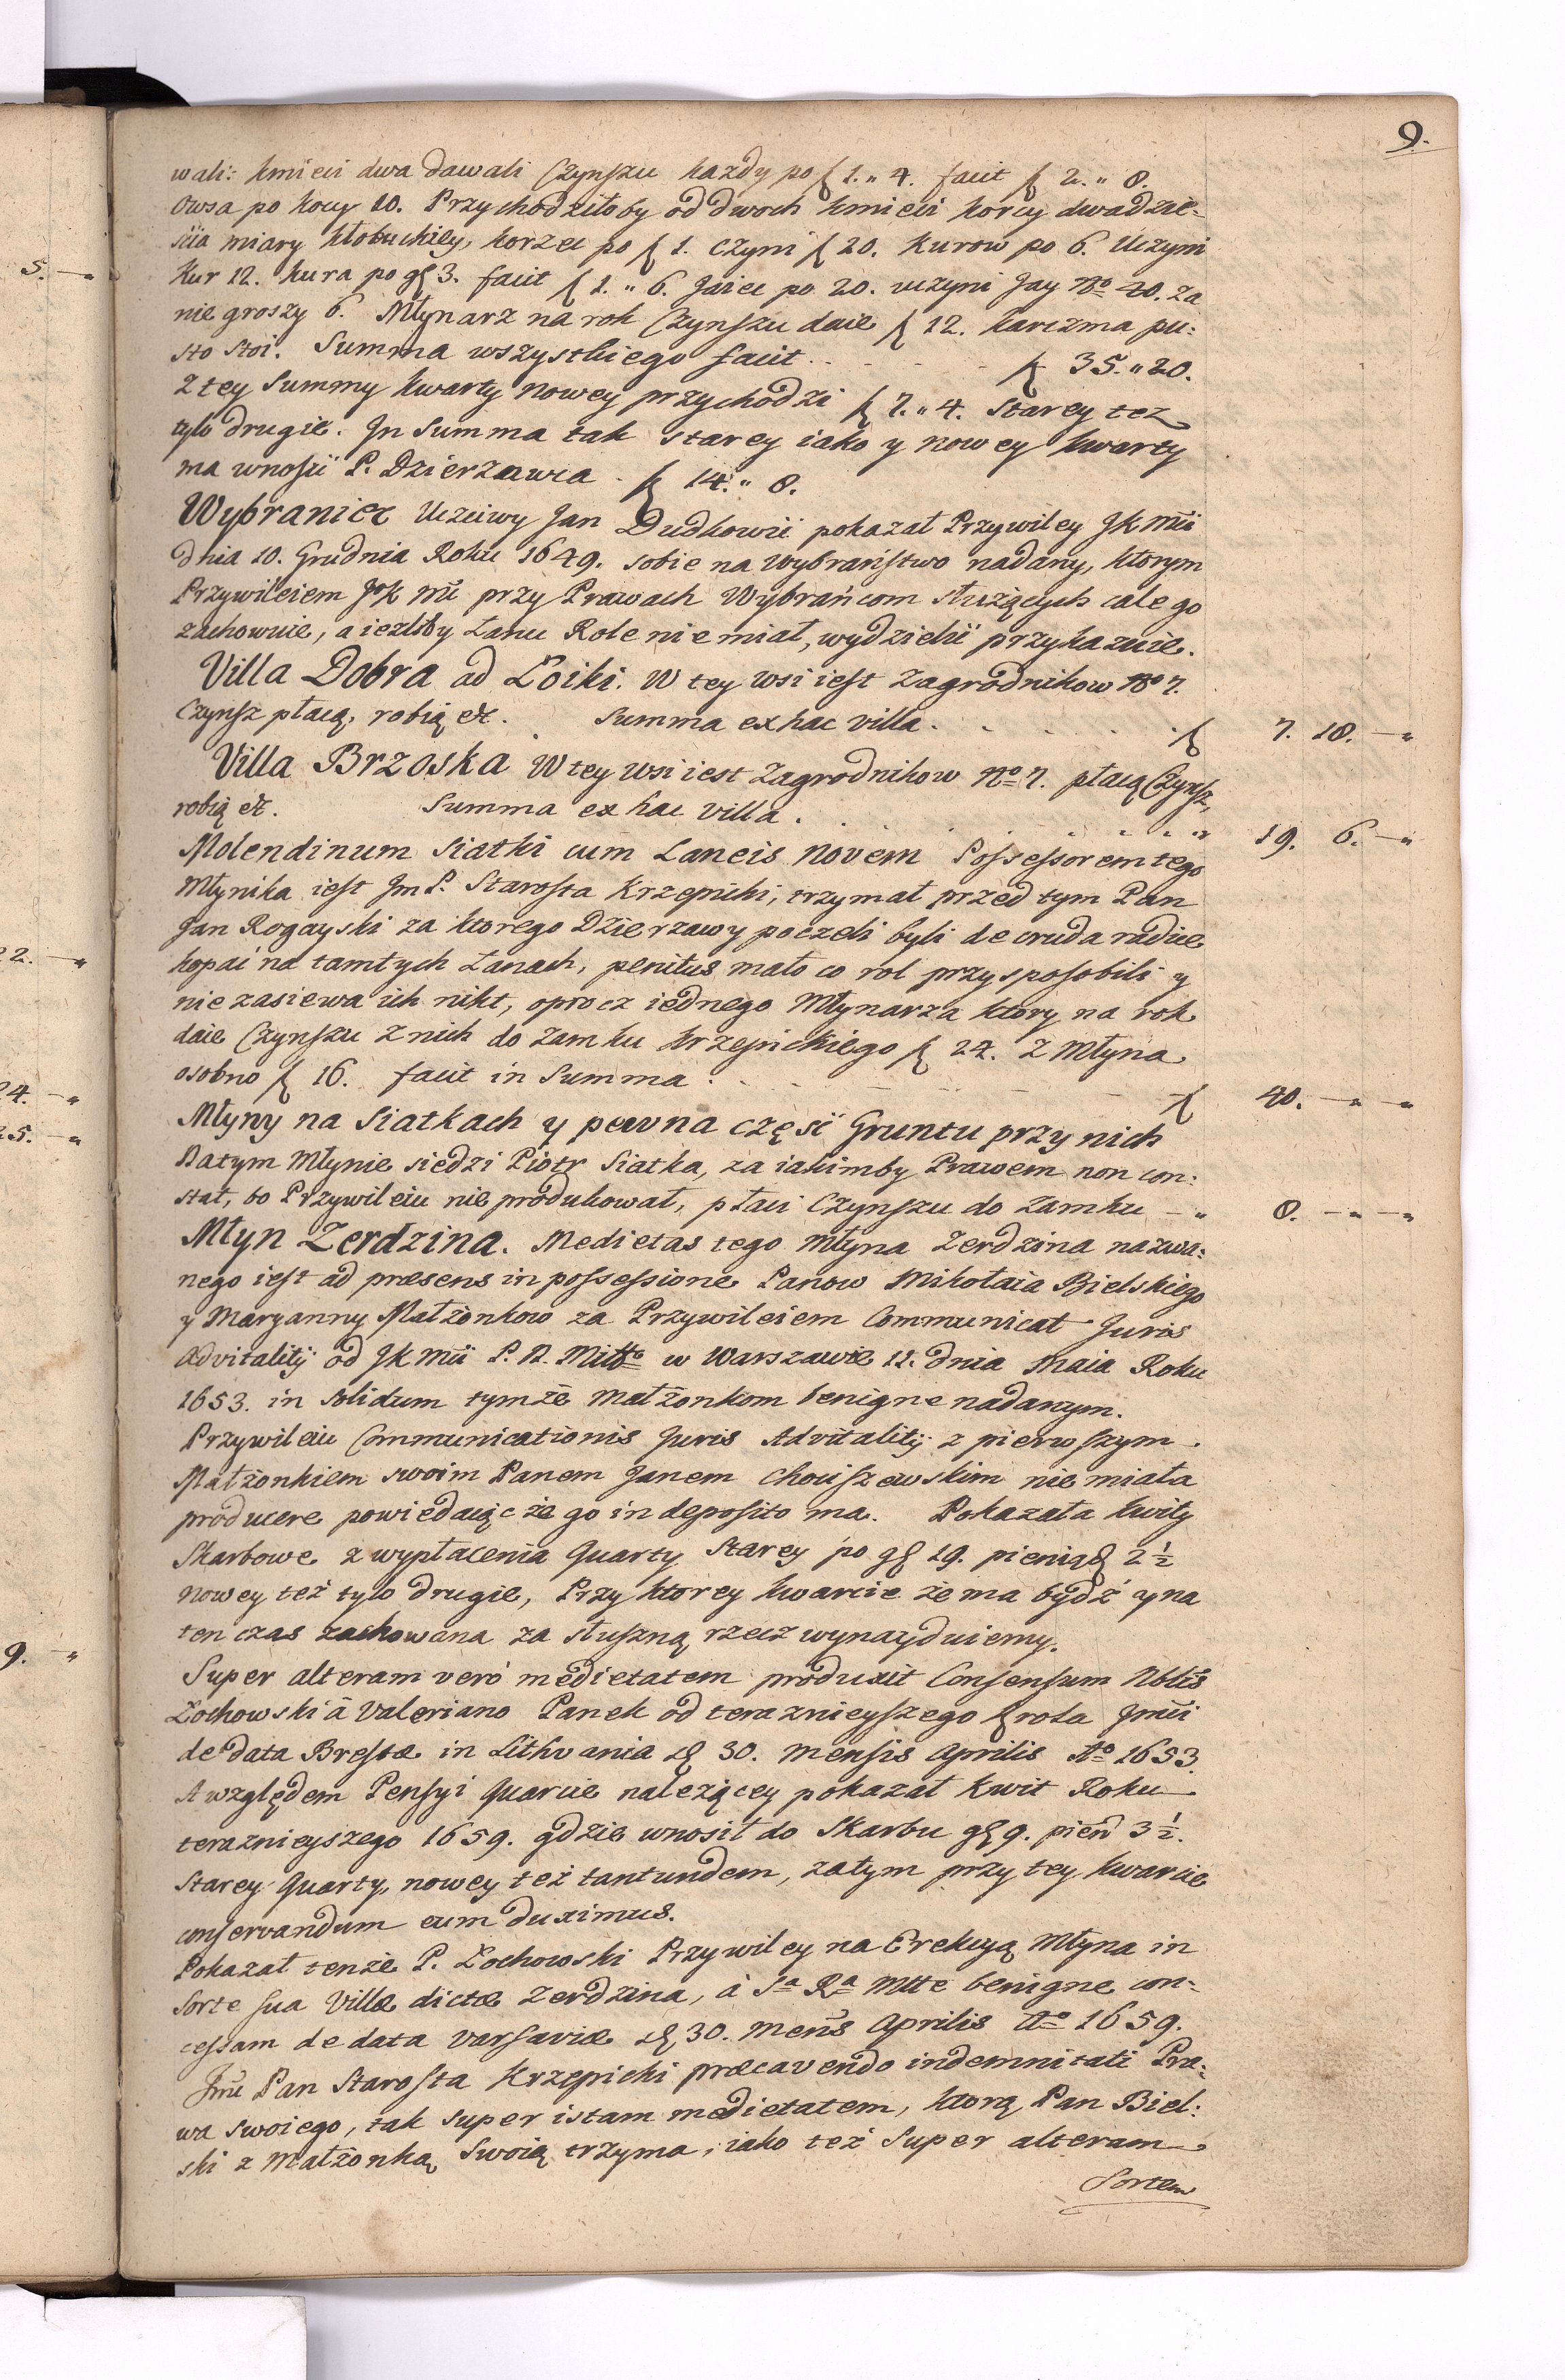 9.
wali: kmieci dwa dawali Czynszu kazdy po f 1. " 4. facit f 2. " 8.
Owsa po kocy 10. Przychodziłoby od dwoch kmieci korcy dwadzie-
scia miary kłobuckiey, korzec po f 1. czyni f 20. Kurow po 6. Uczyni
Kur 12. kura po gß 3. facit f 1. " 6. Jaiec po 20. uczyni Jay No 40. za
nie groszy 6. Młynarz na rok Czynszu daie f 12. karczma pu:
sto stoi. Summa wszystkiego facit . . . . f 35. " 20.
Z tey Summy kwarty nowey przychodzi f 7. " 4. Starey tez
tylo drugie. In Summa tak starey iako y nowey kwarty
ma wnosić P. Dzierzawca . f 14. " 8.
Wybraniec Uczciwy Jan Dudkowic pokazał Przywiley JKMći
dnia 10. Grudnia Roku 1649. sobie na Wybraństwo nadany, ktorym
Przywileiem JoK Mć przy Prawach Wybrańcom służących cale go
zachownie, a iezliby Łanu Role nie miał, wydzielić przykazuie.
Villa Dobra ad Łoiki. W tey wsi iest Zagrodnikow No 7.
Czynsz płacą, robią &c. Summa ex hac villa . . . . f 7. 18. — "
Villa Brzoska W tey wsi iest Zagrodnikow No 7. płacą Czynsz,
robią &c. Summa ex hac villa . . . . " 19. 6. — "
Molendinum Siatki cum Laneis Novem Possessorem tego
Młynika iest Jm P. Starosta Krzepicki, trzymał przed tym Pan
Jan Rogayski za ktorego Dzierzawy poczeli byli de cruda radice
kopać na tamtych Łanach, penitus mało co rol przysposobili y
nie zasiewa ich nikt, oprocz iednego Młynarza ktory na rok
daie Czynszu z nich do Zamku Krzepickiego f 24. Z Młyna
osobno f 16. facit in Summa . . . f 40. — " — "
Młyny na Siatkach y pewna część Gruntu przy nich
Na tym Młynie siedzi Piotr Siatka, za iakimby Prawem non con:
stat, bo Przywileiu nie produkował, płaci Czynszu do Zamku — " 8. — " — "
Młyn Zerdzina. Medietas tego Młyna Zerdzina nazwa:
nego iest ad præsens in possessione Panow Mikołaia Bielskiego
y Maryanny Małżonkow za Przywileiem Communicat Juris
Advitalitÿ od JKMći P. N. Mitto w Warszawie 12. dnia Maia Roku
1653. in solidum tymże Małżonkom benigne nadanym.
Przywileiu Communicationis Juris Advitalitÿ z pierwszym
Małżonkiem swoim Panem Janem Chociszewskim nie miała
producere powiedaiąc że go in deposito ma. Pokazała kwity
Skarbowe z wypłacenia Quarty Starey po gß 19. pieniąß 2 ½
nowey też tylo drugie, Przy ktorey kwarcie że ma bydź y na
ten czas zachowana za słuszną rzecz wynayduiemy.
Super alteram verò medietatem produxit Consensum Nobłis
Żochowski à Valeriano Panek od teraznieyszego Krola Jmći
de data Brestæ in Lithvania dß 30. mensis Aprilis Ao 1653.
A względem Pensyi Quarcie należącey pokazał Kwit Roku
teraznieyszego 1659. gdzie wnosił do Skarbu gß 9. pień 3 ½.
Starey Quarty, nowey też tantundem, zatym przy tey kwarcie
conservandum eum duximus.
Pokazał tenże P. Żochowski Przywiley na Erekcyą Młyna in
Sorte sua Villæ dictæ Zerdzina, à Sa Ra Mtte benigne con:
cessam de data Varsaviæ dß 30. Mens Aprilis Ao 1659.
Jmć Pan Starosta Krzepicki præcavendo indemnitati Pra:
wa swoiego, tak super istam medietatem, ktorą Pan Biel:
ski z Małżonką swoią trzyma, iako też super alteram
Sortem
5. — "
22. — "
24. — "
25. — "
9. — "